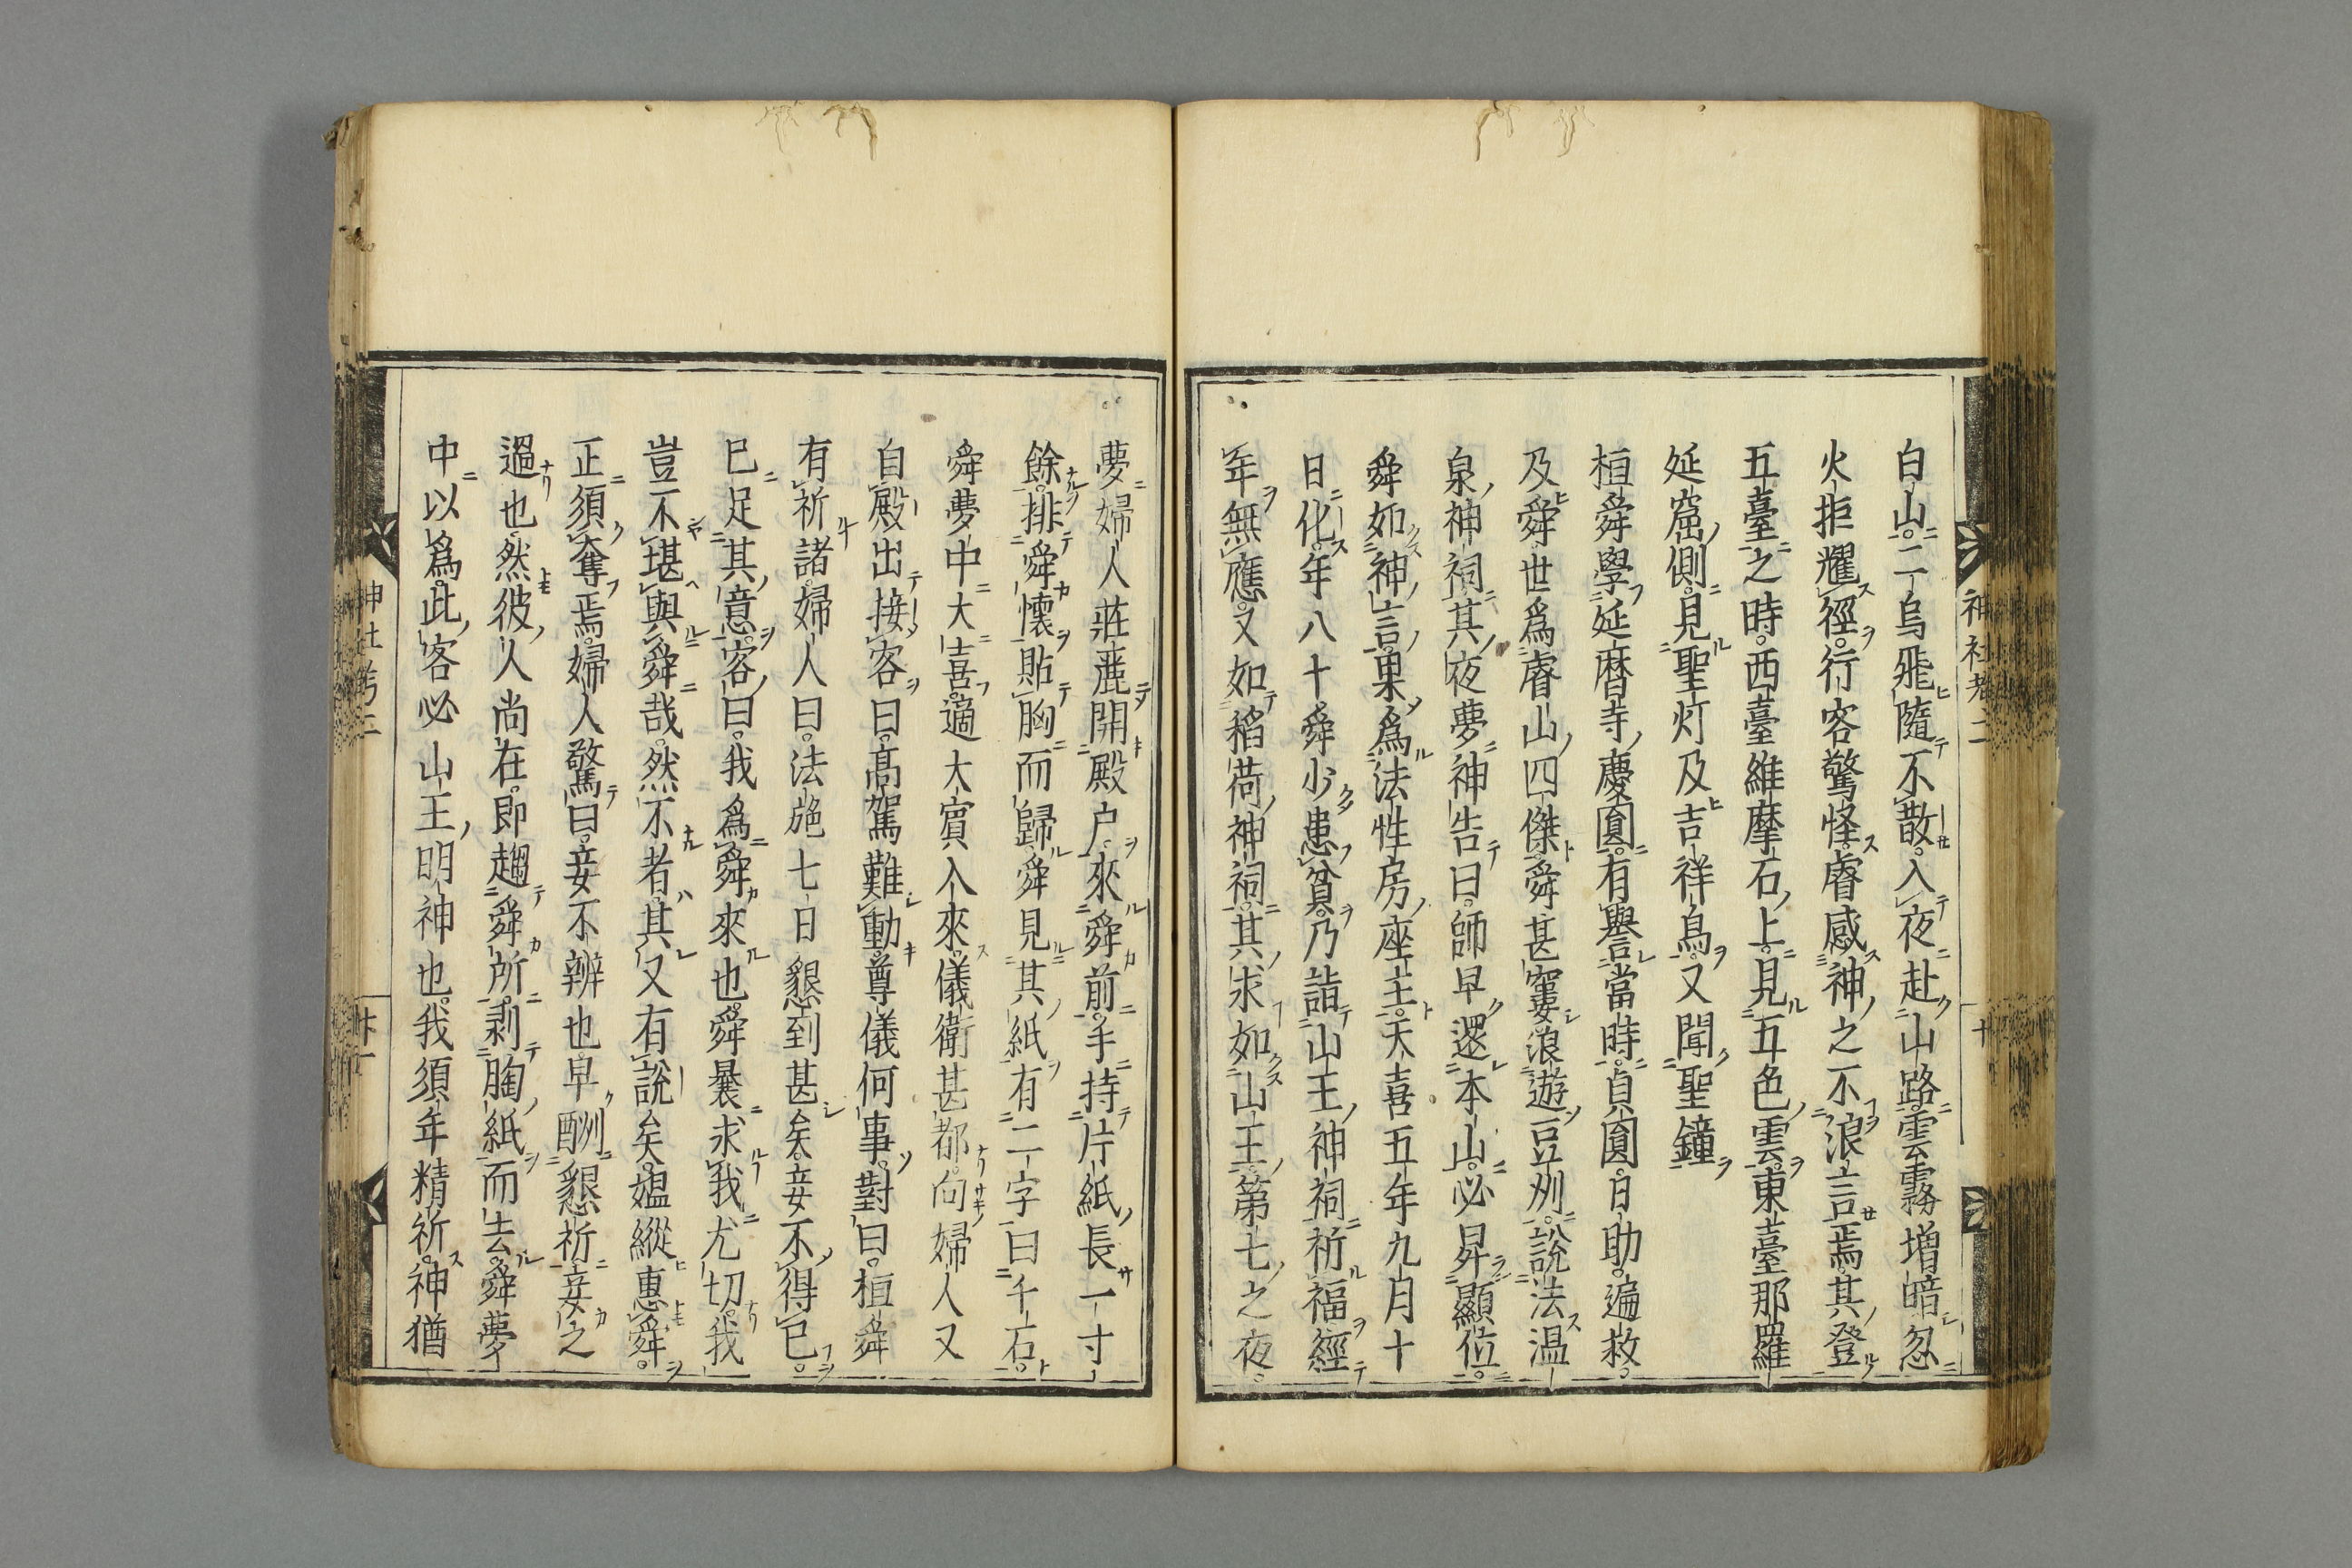 白山二烏飛隨不散入夜赴山路雲霧增暗忽
火拒耀徑行客驚怪睿感神之不浪言焉其登
五臺之時西臺維摩石上見五色雲東臺那羅
延窟側見聖灯及吉祥鳥又聞聖鐘
桓舜學延曆寺慶圓有譽當時貞圓日助遍救
及舜世爲睿山四傑舜甚窶浪遊豆州說法温
泉神祠其夜夢神告曰師早還本山必昇顯位
舜如神言果爲法性房座主天喜五年九月十
日化年八十舜少患貧乃詣山王神祠祈福經
年無應又如稻荷神祠其求如山王第七之夜
夢婦人莊麗開殿户來舜前手持片紙長一寸
餘排舜懷貼胸而歸舜見其紙有二字曰千石
舜夢中大喜適大賓入來儀衛甚都向婦人又
自殿出接客曰高駕難動尊儀何事對曰桓舜
有祈諸婦人曰法施七日懇到甚矣妾不得已
已足其意客曰我爲舜來也舜曩求我尤切我
豈不堪與舜哉然不者其又有說矣媼縱惠舜
正須奪焉婦人驚曰妾不辨也早酬懇祈妾之
過也然彼人尚在即趨舜所剥胸紙而去舜夢
中以爲此客必山王明神也我須年精祈神猶
神社考二
十
神社考二
廿一